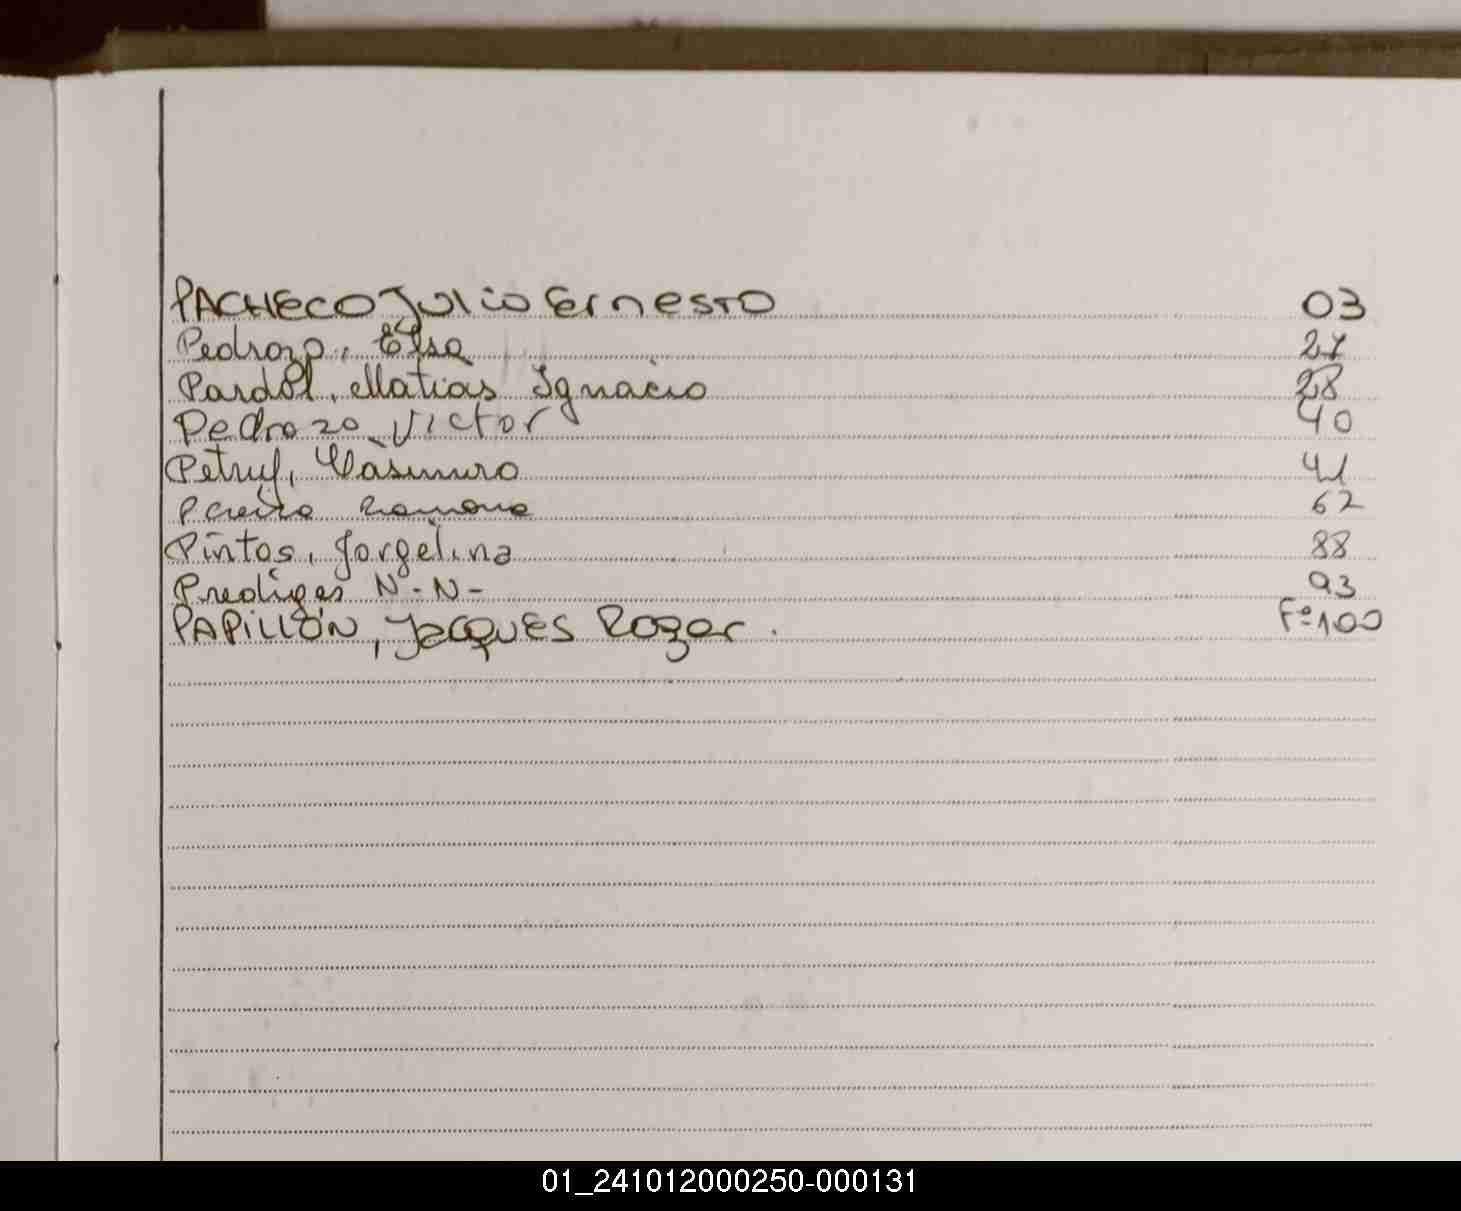 PACHECO Julio Ernesto 03
Pedrozo, Elsa 27
Pardol, Matias Ignacio 28
Pedrozo Victor 40
Petruf, Casimiro 41
Pereira Ramona 62
Pintos, Jorgelina 88
Prediger N-N- 93
PAPILLÓN, Jacques Roger. Fº 100
01_241012000250-000131